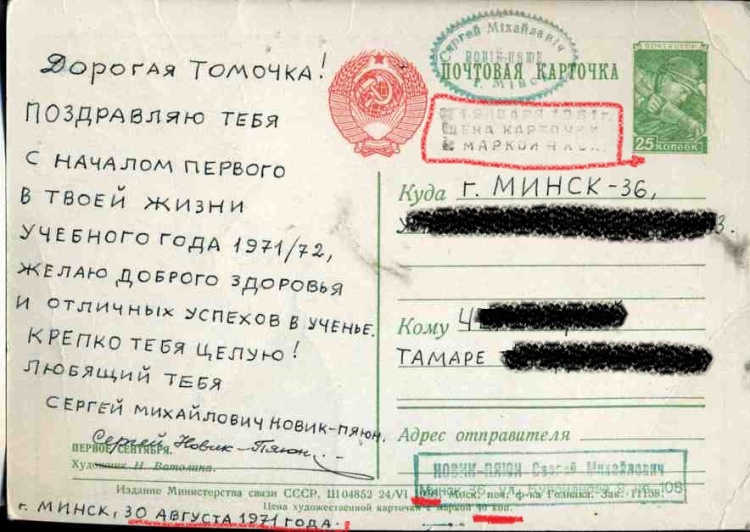 Дорогая ТОМОЧКА!
ПОЗДРАВЛЯЮ ТЕБЯ
С НАЧАЛОМ ПЕРВОГО
В ТВОЕЙ ЖИЗНИ
УЧЕБНОГО ГОДА 1971/72,
ЖЕЛАЮ ДОБРОГО ЗДОРОВЬЯ
И ОТЛИЧНЫХ УСПЕХОВ В УЧЕНЬЕ.
КРЕПКО ТЕБЯ ЦЕЛУЮ!
ЛЮБЯЩИЙ ТЕБЯ
СЕРГЕЙ МИХАЙЛОВИЧ НОВИК-ПЯЮН.
Сергей Новик-Пяюн.
ПЕРВОЕ СЕНТЯБРЯ.
Художник И. Ватолина.
Сергей Міхайлавіч
НОВІК-ПЯЮН
г. Мінск
ПОЧТОВАЯ КАРТОЧКА
1 ЯНВАРЯ 1961г.
ЦЕНА КАРТОЧКИ
С МАРКОЙ 4 КОП.
ПОЧТА СССР
25 КОПЕЕК
Куда г. МИНСК-36,
Кому
ТАМАРЕ
Адрес отправителя
НОВИК-ПЯЮН Сергей Михайлович
Минск-36, ул. 108
Издание Министерства связи СССР. Ш 04852 24/VI Моск. печ. ф-ка Гознака. Зак. 11108.
Цена художественной карточки с маркой 40 коп.
г. МИНСК, 30 АВГУСТА 1971 ГОДА.